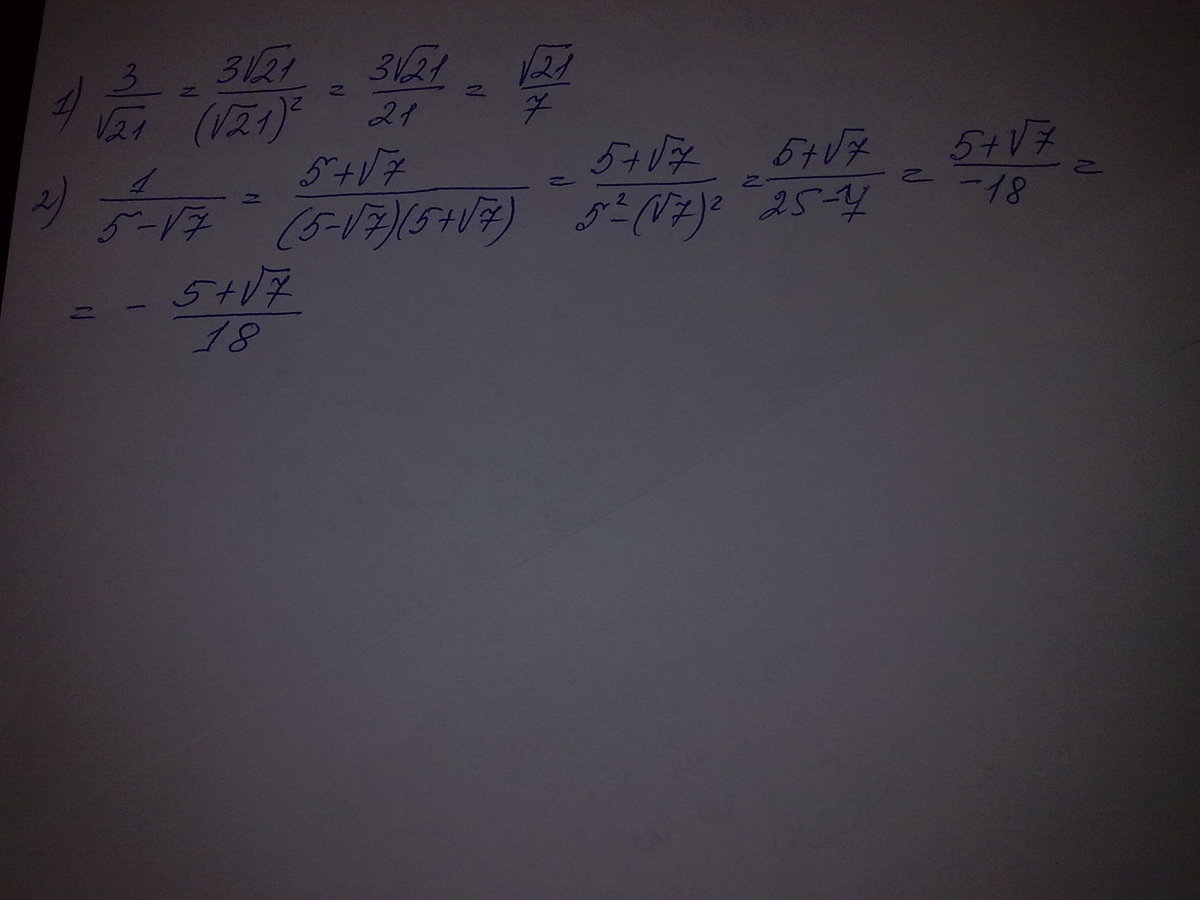 1) 3/√21 = 3√21/(√21)² = 3√21/21 = √21/7
2) 1/(5-√7) = (5+√7)/((5-√7)(5+√7)) = (5+√7)/(5²-(√7)²) = (5+√7)/(25-7) = (5+√7)/(-18) =
= - (5+√7)/18